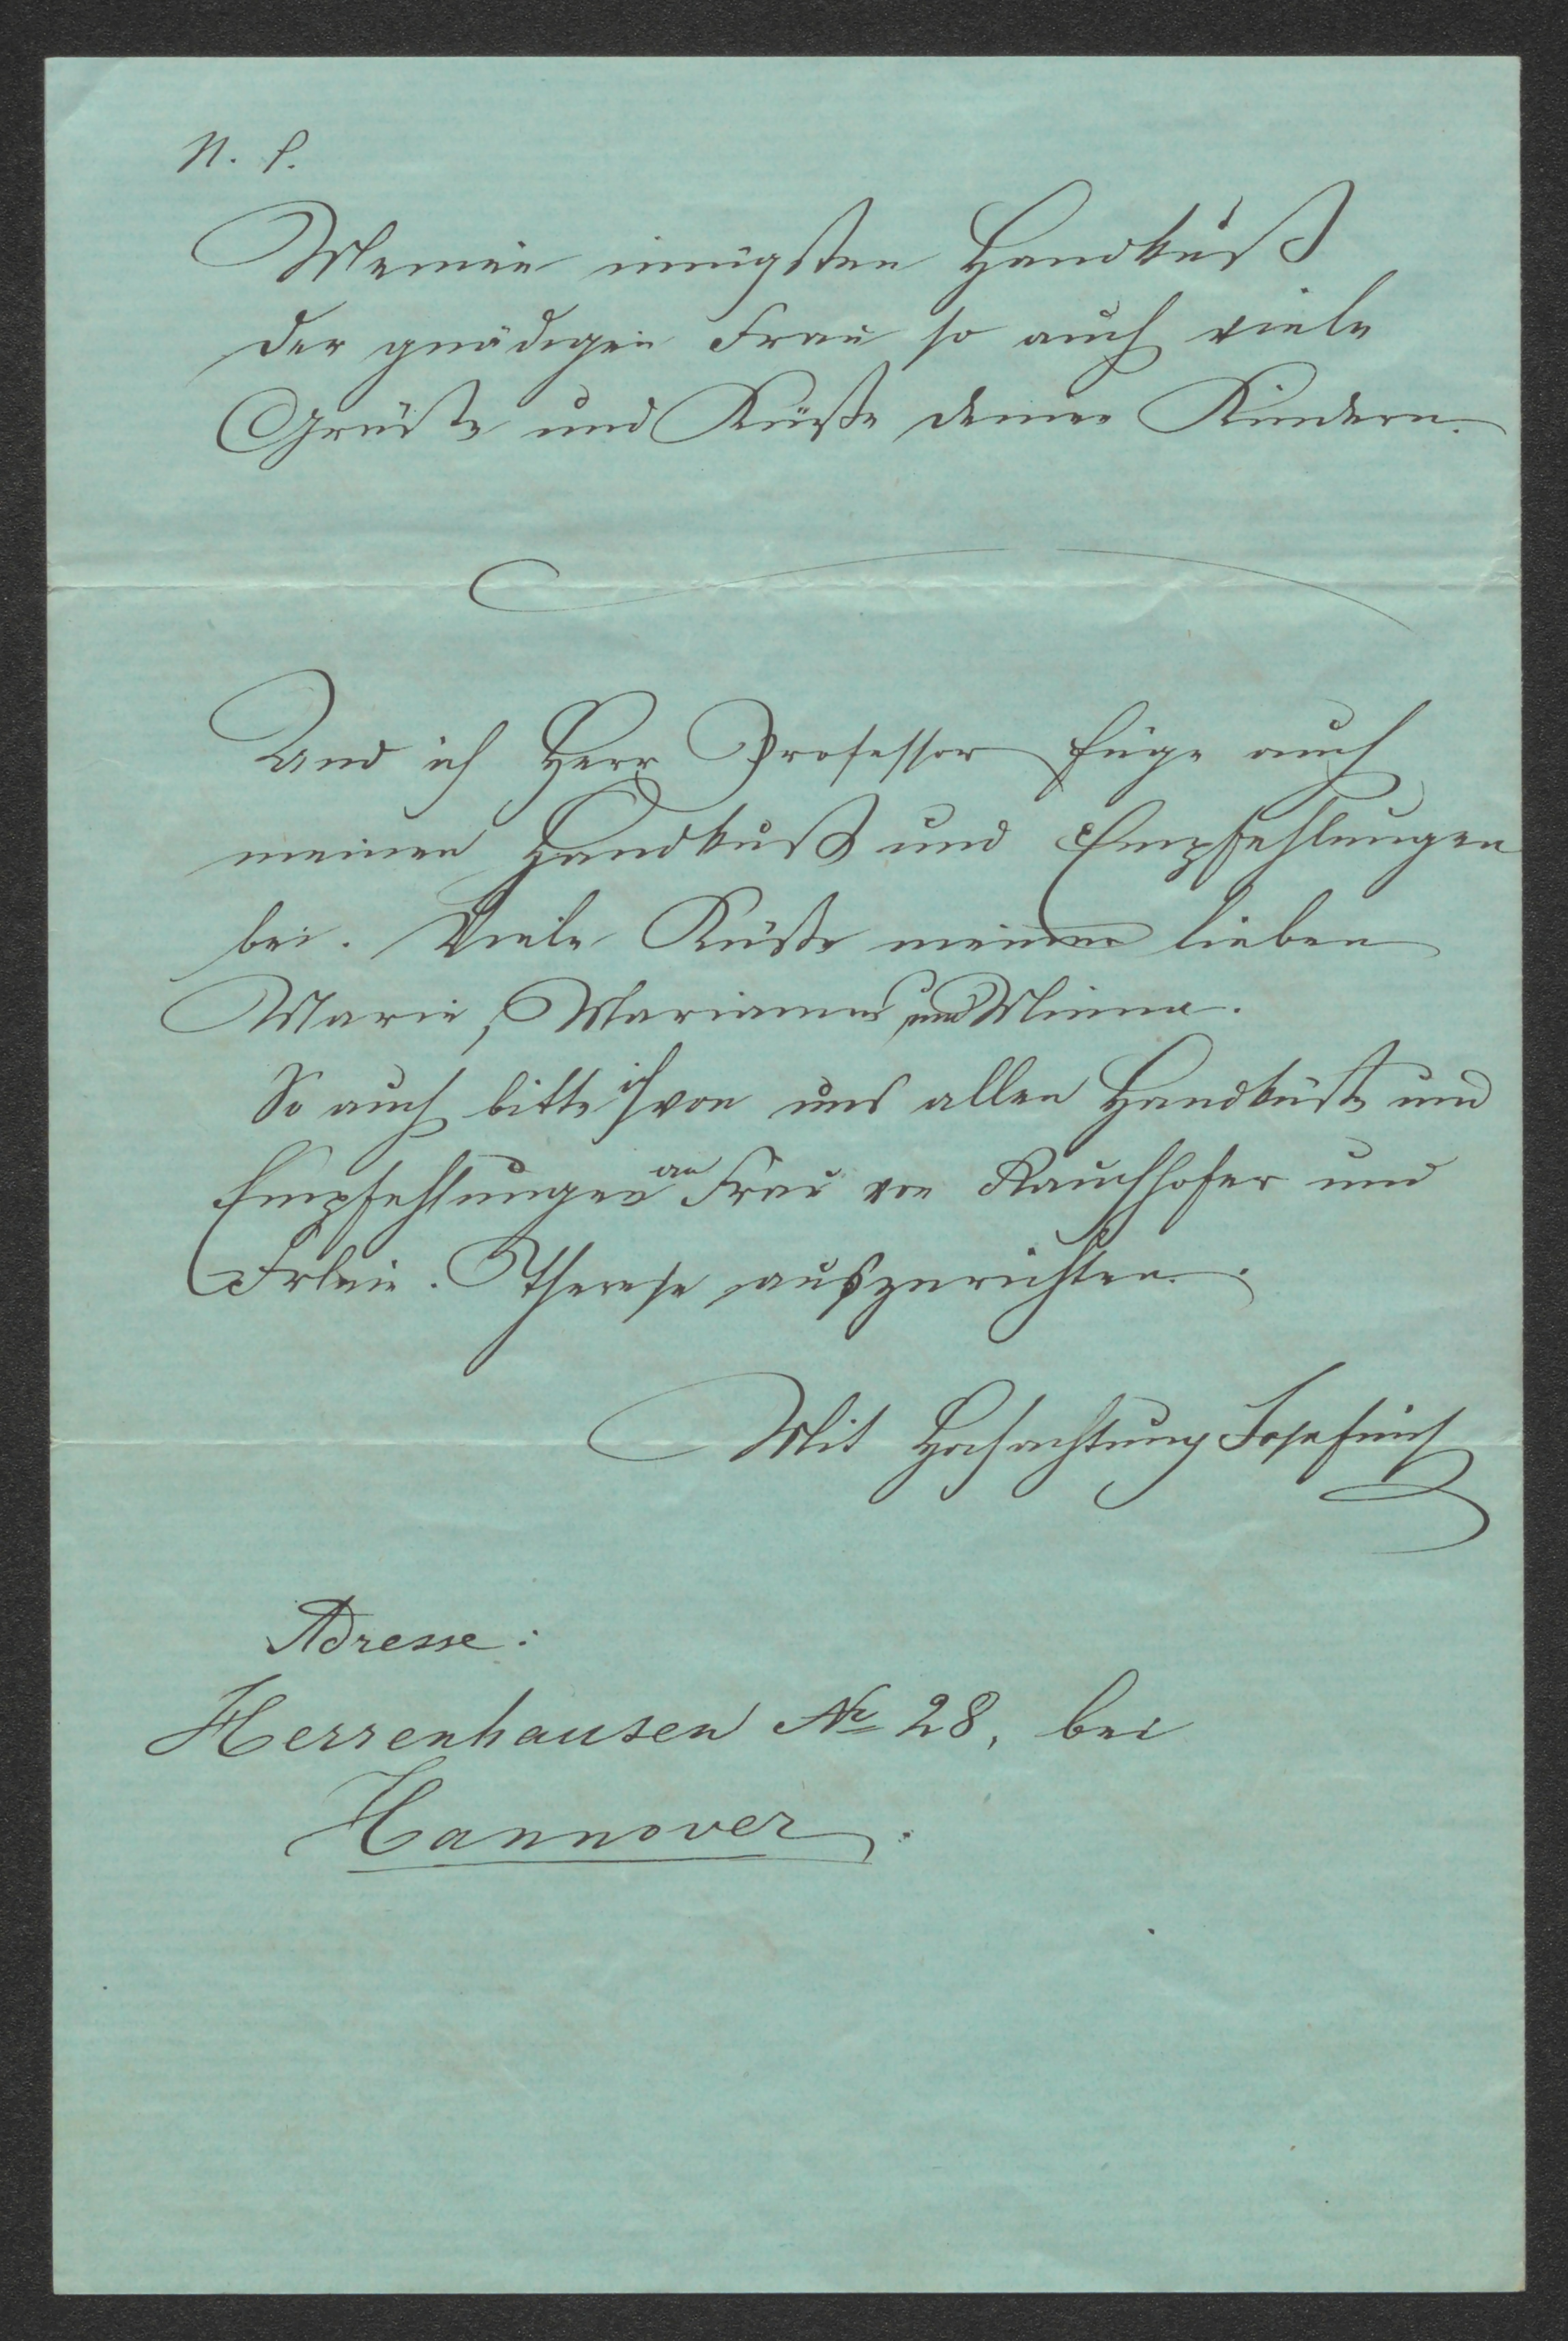 N. S.
Meinen innigsten Handkuß
der gnädigen Frau so auch viele
Grüße und Küße denen Kindern.
Und ich Herr Professor füge auch
meinen Handkuß und Empfehlungen
bei. Viele Küße meinen lieben
Marie, Marianne und Minna.
So auch bitte ich von uns allen Handküße und
Empfehlungen an Frau von Rauchhofer und
Frlein. Therese auszurichten.
Mit Hochachtung
Adresse:
Herrenhausen No 28, bei
Hannover.